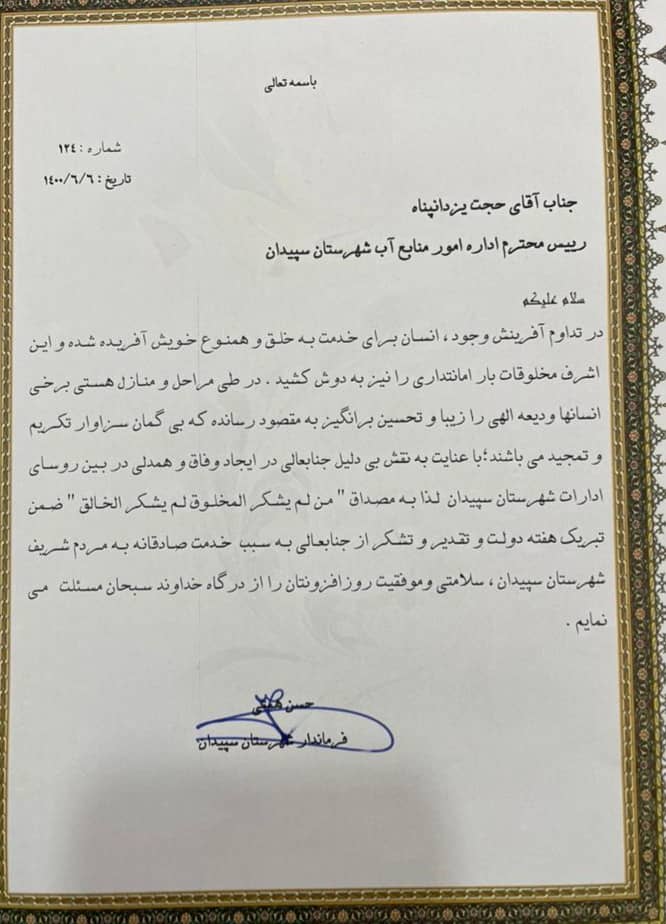 باسمه تعالی
شماره : ۱۲٤
تاریخ : ۱٤۰۰/۶/۶
جناب آقای حجت یزدانپناه
رییس محترم اداره امور منابع آب شهرستان سپیدان
سلام علیکم
در تداوم آفرینش وجود ، انسان برای خدمت به خلق و همنوع خویش آفریده شده و این
اشرف مخلوقات بار امانتداری را نیز به دوش کشید . در طی مراحل و منازل هستی برخی
انسانها ودیعه الهی را زیبا و تحسین برانگیز به مقصود رسانده که بی گمان سزاوار تکریم
و تمجید می باشند؛با عنایت به نقش بی دلیل جنابعالی در ایجاد وفاق و همدلی در بین روسای
ادارات شهرستان سپیدان لذا به مصداق " من لم یشکر المخلوق لم یشکر الخالق " ضمن
تبریک هفته دولت و تقدیر و تشکر از جنابعالی به سبب خدمت صادقانه به مردم شریف
شهرستان سپیدان ، سلامتی وموفقیت روزافزونتان را از درگاه خداوند سبحان مسئلت می
نمایم .
حسن
فرماندار شهرستان سپیدان